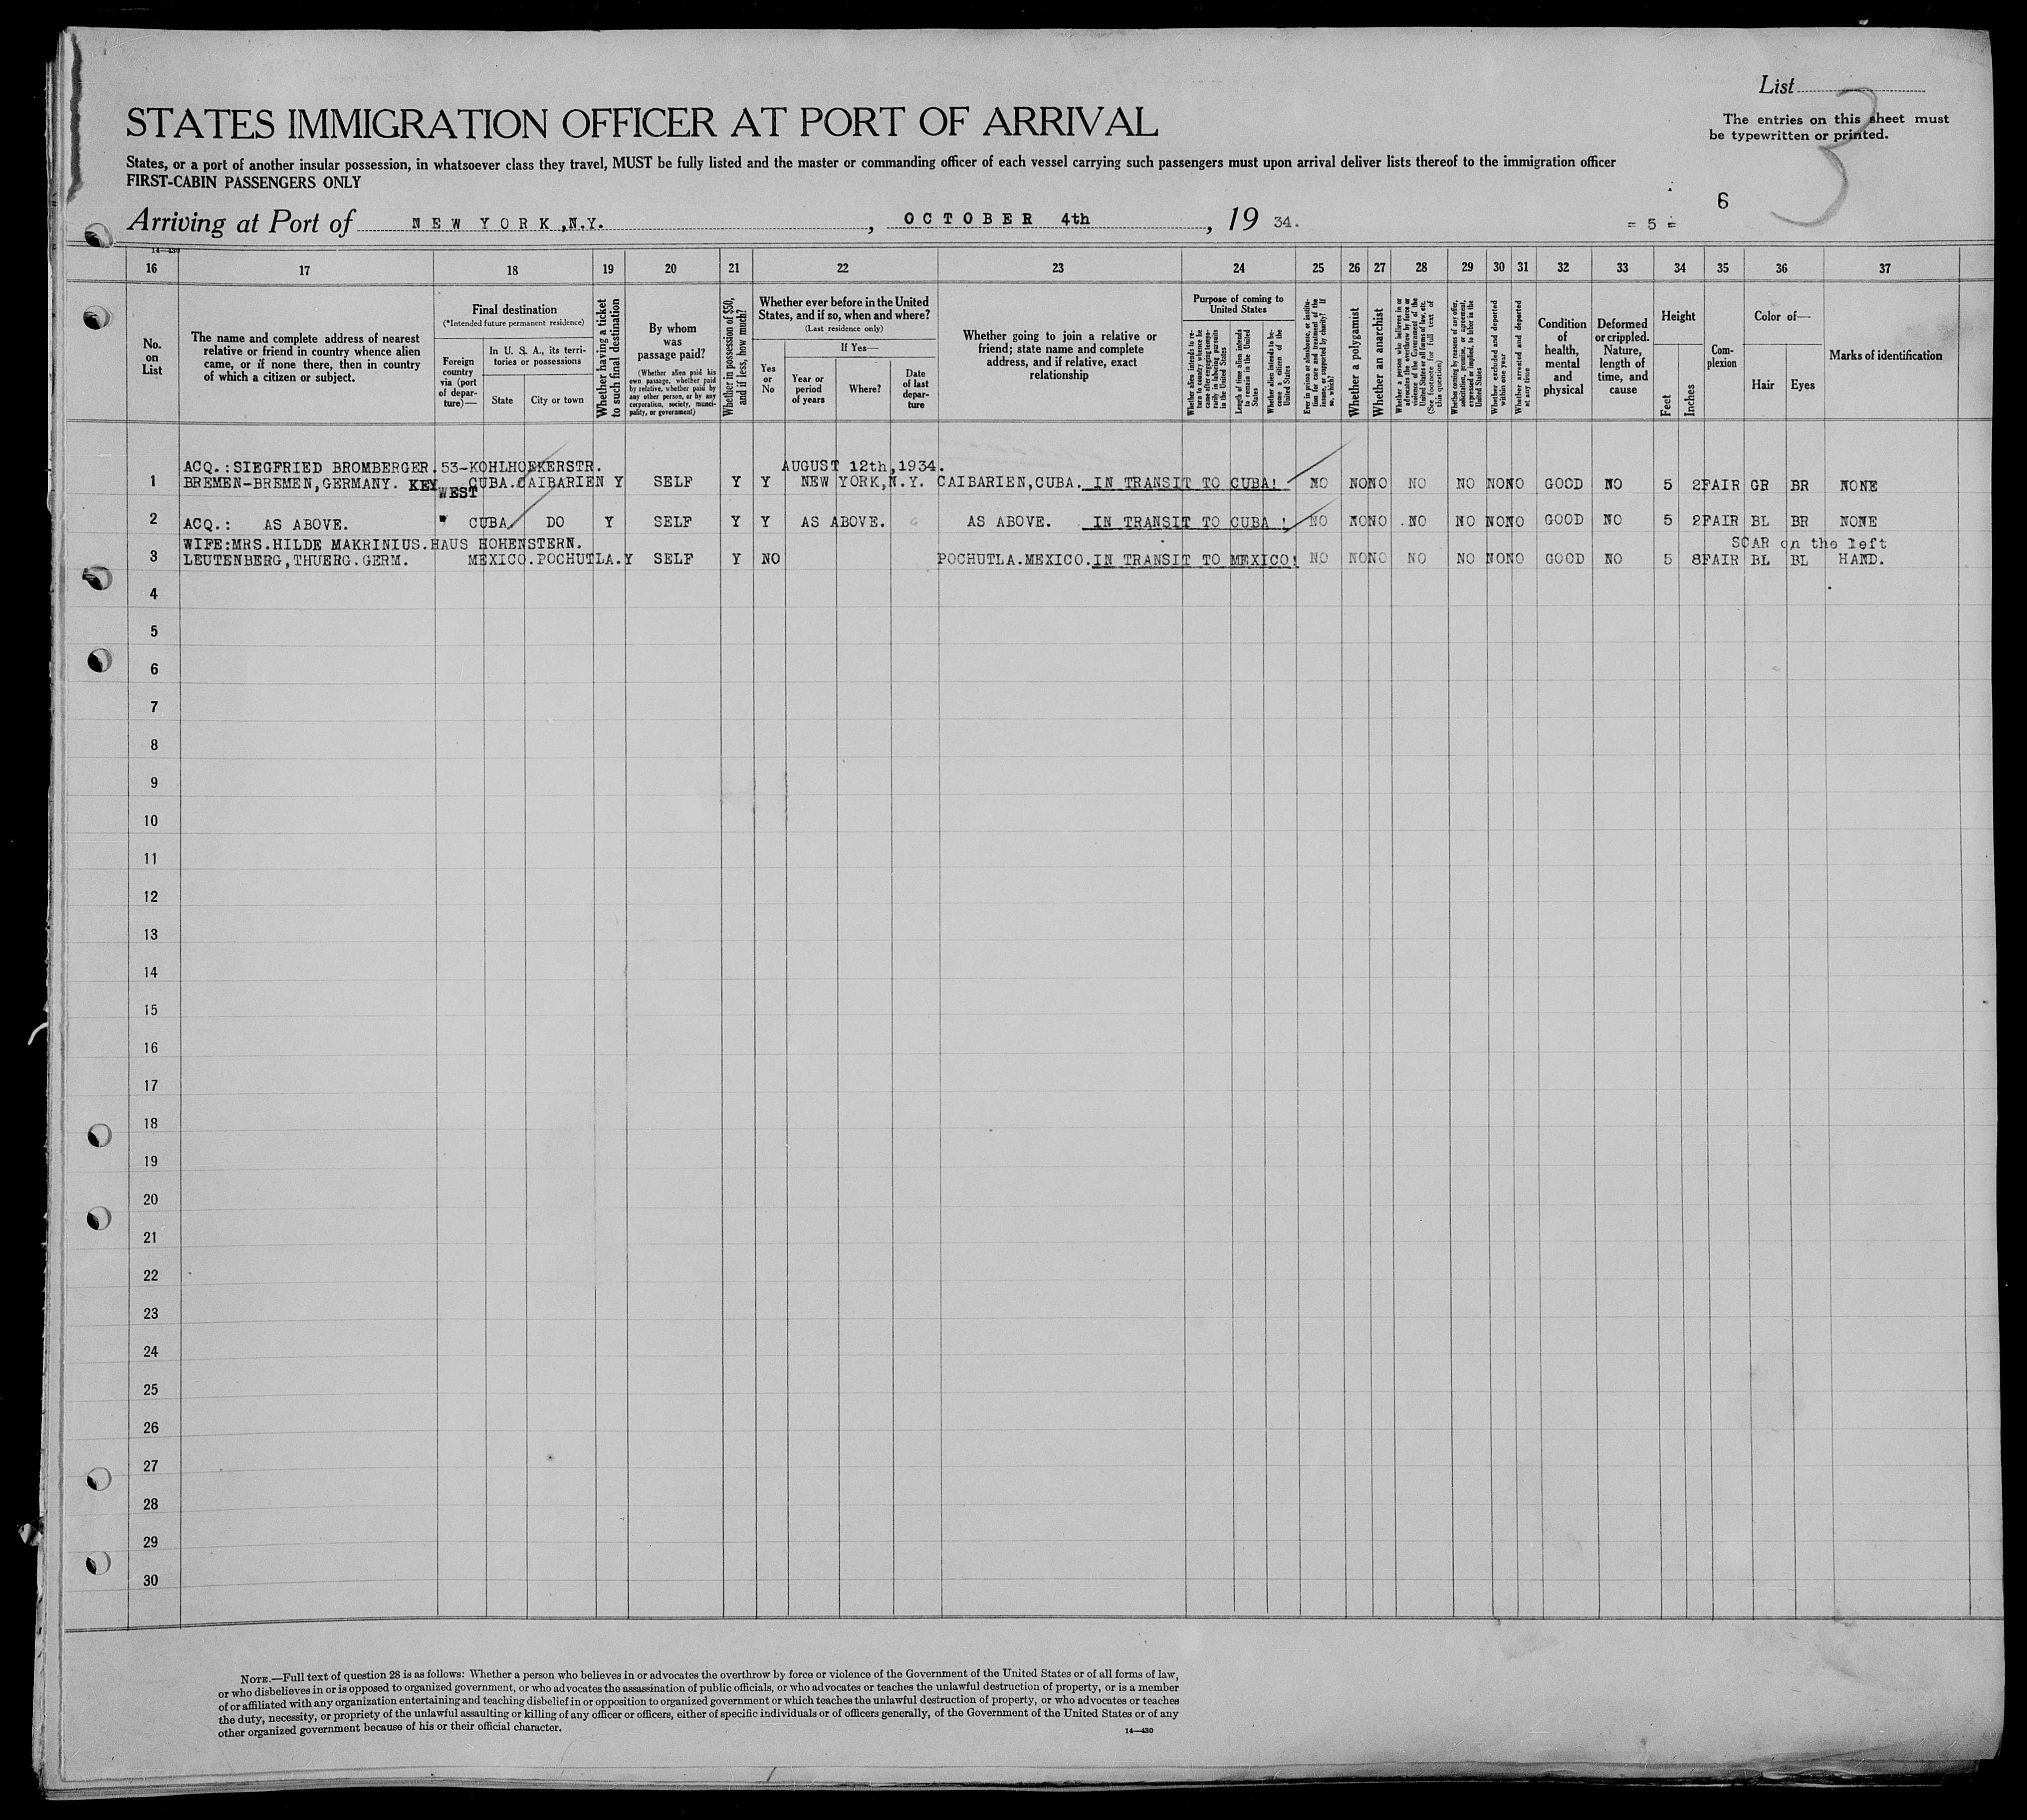 List
3
The entries on this sheet must
be typewritten or printed.
STATES IMMIGRATION OFFICER AT PORT OF ARRIVAL
States, or a port of another insular possession, in whatsoever class they travel, MUST be fully listed and the master or commanding officer of each vessel carrying such passengers must upon arrival deliver lists thereof to the immigration officer
FIRST-CABIN PASSENGERS ONLY
6
Arriving at Port of NEW YORK,N.Y., OCTOBER 4th, 19 34.
= 5 =
14—430
16 17 18 19 20 21 22 23 24 25 26 27 28 29 30 31 32 33 34 35 36 37
No.
on
List
The name and complete address of nearest
relative or friend in country whence alien
came, or if none there, then in country
of which a citizen or subject.
Final destination
(*Intended future permanent residence)
Foreign
country
via (port
of depar-
ture)—
In U. S. A., its terri-
tories or possessions
State
City or town
Whether having a ticket
to such final destination
By whom
was
passage paid?
(Whether alien paid his
own passage, whether paid
by relative, whether paid by
any other person, or by any
corporation, society, munici-
pality, or government)
Whether in possession of $50,
and if less, how much?
Whether ever before in the United
States, and if so, when and where?
(Last residence only)
If Yes—
Yes
or
No
Year or
period
of years
Where?
Date
of last
depar-
ture
Whether going to join a relative or
friend; state name and complete
address, and if relative, exact
relationship
Purpose of coming to
United States
Whether alien intends to re-
turn to country whence he
came after engaging tempo-
rarily in laboring pursuits
in the United States
Length of time alien intends
to remain in the United
States
Whether alien intends to be-
come a citizen of the
United States
Ever in prison or almshouse, or institu-
tion for care and treatment of the
insane, or supported by charity? If
so, which?
Whether a polygamist
Whether an anarchist
Whether a person who believes in or
advocates the overthrow by force or
violence of the Government of the
United States or all forms of law, etc.
(See footnote for full text of
this question)
Whether coming by reasons of any offer,
solicitation, promise, or agreement,
expressed or implied, to labor in the
United States
Whether excluded and deported
within one year
Whether arrested and deported
at any time
Condition
of
health,
mental
and
physical
Deformed
or crippled.
Nature,
length of
time, and
cause
Height
Feet
Inches
Com-
plexion
Color of—
Hair
Eyes
Marks of identification
ACQ.:SIEGFRIED BROMBERGER.53-KOHLHOEKERSTR. AUGUST 12th,1934.
1 BREMEN-BREMEN,GERMANY. KEY WEST CUBA.CAIBARIEN Y SELF Y Y NEW YORK,N.Y. CAIBARIEN,CUBA. IN TRANSIT TO CUBA! NO NO NO NO NO NO NO GOOD NO 5 2 FAIR GR BR NONE
2 ACQ.: AS ABOVE. " CUBA DO Y SELF Y Y AS ABOVE. AS ABOVE. IN TRANSIT TO CUBA ! NO NO NO .NO NO NO NO GOOD NO 5 2 FAIR BL BR NONE
WIFE:MRS.HILDE MAKRINIUS.HAUS HOHENSTERN. SCAR on the left
3 LEUTENBERG,THUERG.GERM. MEXICO.POCHUTLA.Y SELF Y NO POCHUTLA.MEXICO.IN TRANSIT TO MEXICO! NO NO NO NO NO NO NO GOOD NO 5 8 FAIR BL BL HAND.
4
5
6
7
8
9
10
11
12
13
14
15
16
17
18
19
20
21
22
23
24
25
26
27
28
29
30
NOTE.—Full text of question 28 is as follows: Whether a person who believes in or advocates the overthrow by force or violence of the Government of the United States or of all forms of law,
or who disbelieves in or is opposed to organized government, or who advocates the assassination of public officials, or who advocates or teaches the unlawful destruction of property, or is a member
of or affiliated with any organization entertaining and teaching disbelief in or opposition to organized government or which teaches the unlawful destruction of property, or who advocates or teaches
the duty, necessity, or propriety of the unlawful assaulting or killing of any officer or officers, either of specific individuals or of officers generally, of the Government of the United States or of any
other organized government because of his or their official character.
14—430